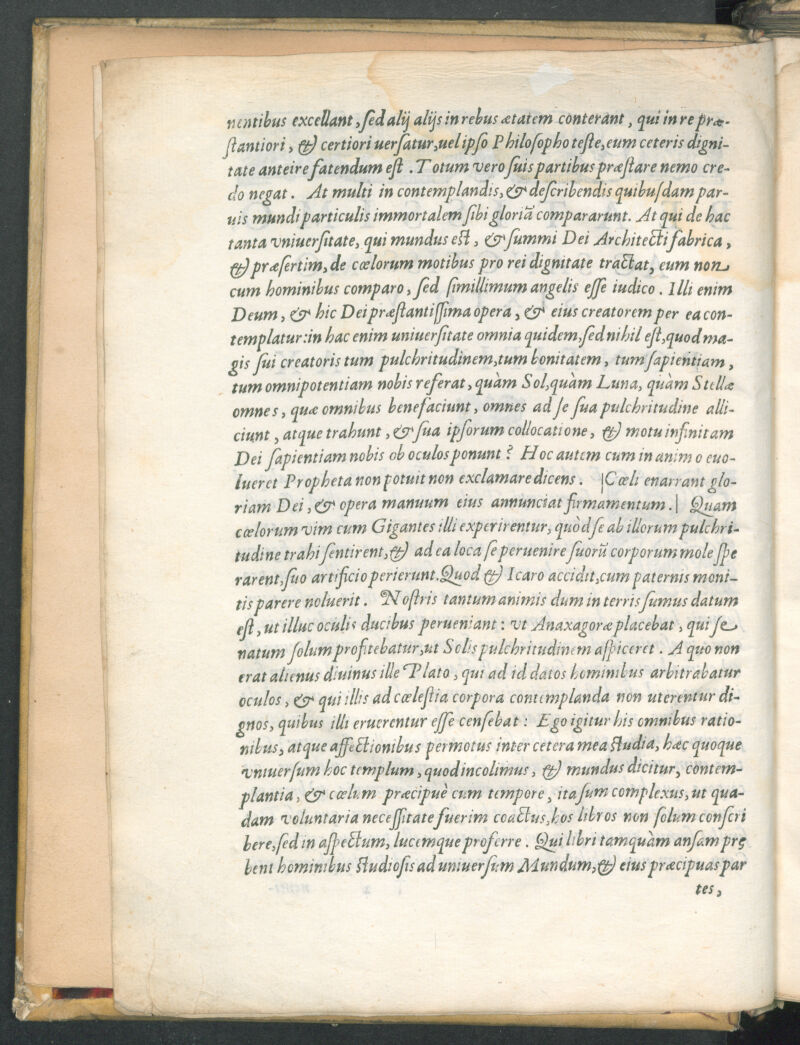 nentibus excellant, sed alij alijs in rebus ætatem conterant, qui in re præ-
stantiori, & certiori uersatur, uel ipso Philosopho teste, eum ceteris digni-
tate anteire fatendum est. Totum vero suis partibus præstare nemo cre-
do negat. At multi in contemplandis, & describendis quibusdam par-
uis mundi particulis immortalem sibi gloriã compararunt. At qui de hac
tanta vniuersitate, qui mundus est, & summi Dei Architecti fabrica,
& præsertim, de cœlorum motibus pro rei dignitate tractat, eum non
cum hominibus comparo, sed simillimum angelis esse iudico. Illi enim
Deum, & hic Dei præstantissima opera, & eius creatorem per ea con-
templatur: in hac enim uniuersitate omnia quidem, sed nihil est, quod ma-
gis sui creatoris tum pulchritudinem, tum bonitatem, tum sapientiam,
tum omnipotentiam nobis referat, quàm Sol, quàm Luna, quàm Stellæ
omnes, quæ omnibus benefaciunt, omnes ad se sua pulchritudine alli-
ciunt, atque trahunt, & sua ipsorum collocatione, & motu infinitam
Dei sapientiam nobis ob oculos ponunt? Hoc autem cum in animo euo-
lueret Propheta non potuit non exclamare dicens. |Cœli enarrant glo-
riam Dei, & opera manuum eius annunciat firmamentum.| Quam
cœlorum vim cum Gigantes illi experirentur, quòd se ab illorum pulchri-
tudine trahi sentirent, & ad ea loca se peruenire suorũ corporum mole spe
rarent, suo artificio perierunt. Quod & Icaro accidit, cum paternis moni-
tis parere noluerit. Nostris tantum animis dum in terris sumus datum
est, ut illuc oculis ducibus perueniant: vt Anaxagoræ placebat, qui se
natum solum profitebatur, ut Solis pulchritudinem aspiceret. A quo non
erat alienus diuinus ille Plato, qui ad id datos hominibus arbitrabatur
oculos, & qui illis ad cœlestia corpora contemplanda non uterentur di-
gnos, quibus illi eruerentur esse censebat: Ego igitur his omnibus ratio-
nibus, atque affectionibus permotus inter cetera mea studia, hæc quoque
vniuersum hoc templum, quod incolimus, & mundus dicitur, contem-
plantia, & cœlum præcipuè cum tempore, ita sum complexus, ut qua-
dam voluntaria necessitate fuerim coactus, hos libros non solum conscri
bere, sed in aspectum, lucemque proferre. Qui libri tamquàm ansam prę
bent hominibus studiosis ad uniuersum Mundum, & eius præcipuas par
tes,